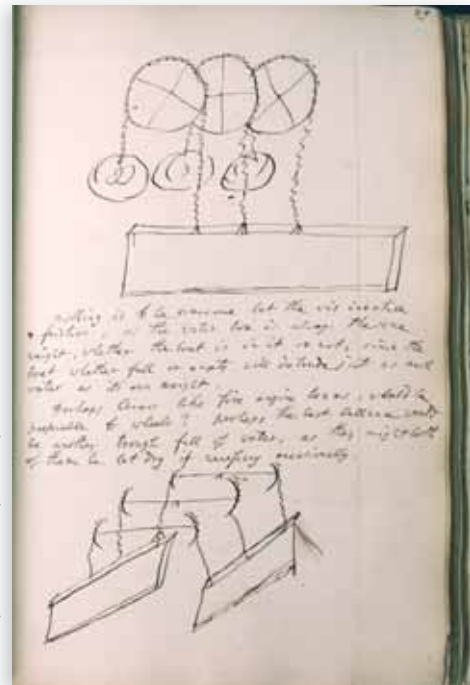 nothing is to be overcome but the vis inertiae
& friction, as the water box is always the same
weight, whether the boat is in it or not, since the
boat whether full or empty will exclude just as much
water as its own weight.
Perhaps levers like fire engine levers, would be
preferable to wheels? perhaps the best ballance would
be another trough full of water, as they might both
of them be let dry if necessary occasionally